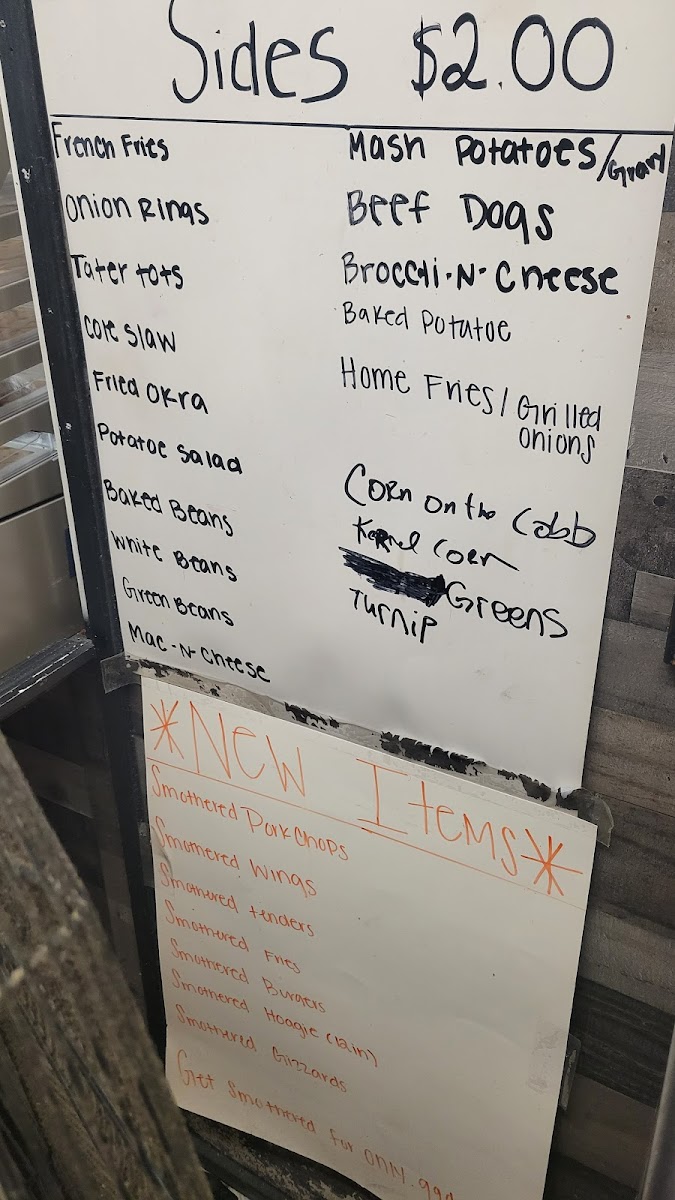 Sides $2.00
French Fries
Onion Rings
Tater tots
Cole Slaw
Fried Okra
Potatoe Salad
Baked Beans
White Beans
Green Beans
Mac-N-Cheese
Mash Potatoes/Gravy
Beef Dogs
Broccli-N-Cheese
Baked Potatoe
Home Fries/Grilled
onions
Corn on the Cobb
Kernel Corn
Greens
Turnip
*New Items*
Smothered Pork Chops
Smothered Wings
Smothered tenders
Smothered Fries
Smothered Burgers
Smothered Hoagie (12in)
Smothered Gizzards
Get Smothered for only .99¢